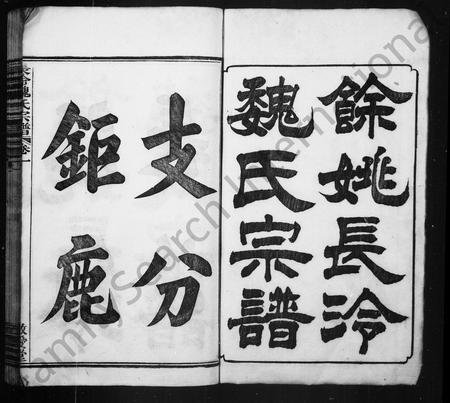 餘姚長泠
魏氏宗譜
支分
鉅鹿
FamilySearch International